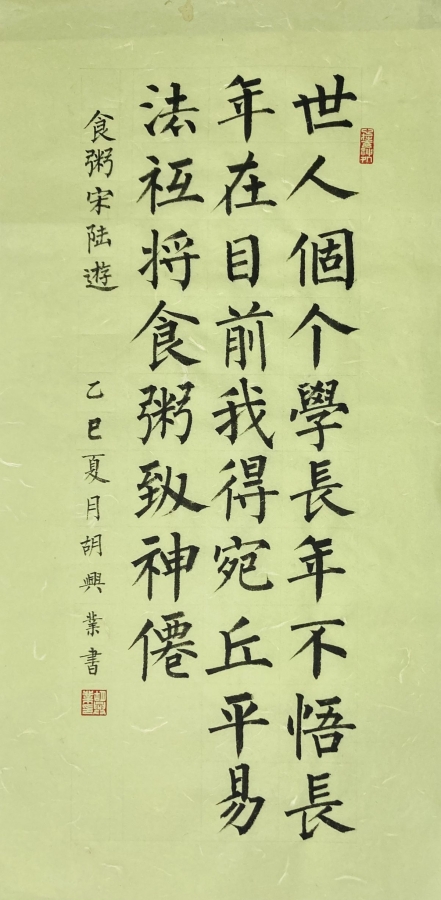 世人個个學長年不悟長
年在目前我得宛丘平易
法祗将食粥致神僊
食粥宋陆遊
乙巳夏月胡興業書